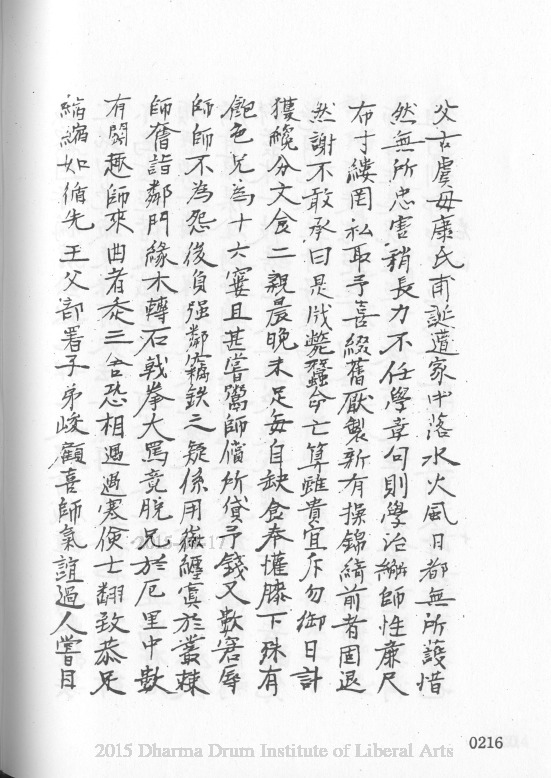 父古虞母康氏甫誕遺家中落水火風日都無所護惜
然無所忠害稍長力不任學章句則學治縧師性廉尺
布寸縷罔私取予喜綴舊厭製新有操錦綺前者固退
然謝不敢承曰是戕斃蠶命亡算雖貴宜斥勿御日計
獲纔分文食二親晨晚未足每自缺食奉懽膝下殊有
飽色兄為十六窶且甚嘗鬻師償所貸予錢又數窘辱
師師不為怨後負强鄰竊鈇之疑係用徽纆寘於叢棘
師奮詣鄰門緣木轉石戟拳大罵竟脫兄於厄里中數
有鬩趣師來曲者忝三舍恐相遇遇寒便士翻致恭足
縮縮如循先王父部署子弟峻顧喜師氣誼過人嘗目
0216
2015 Dharma Drum Institute of Liberal Arts